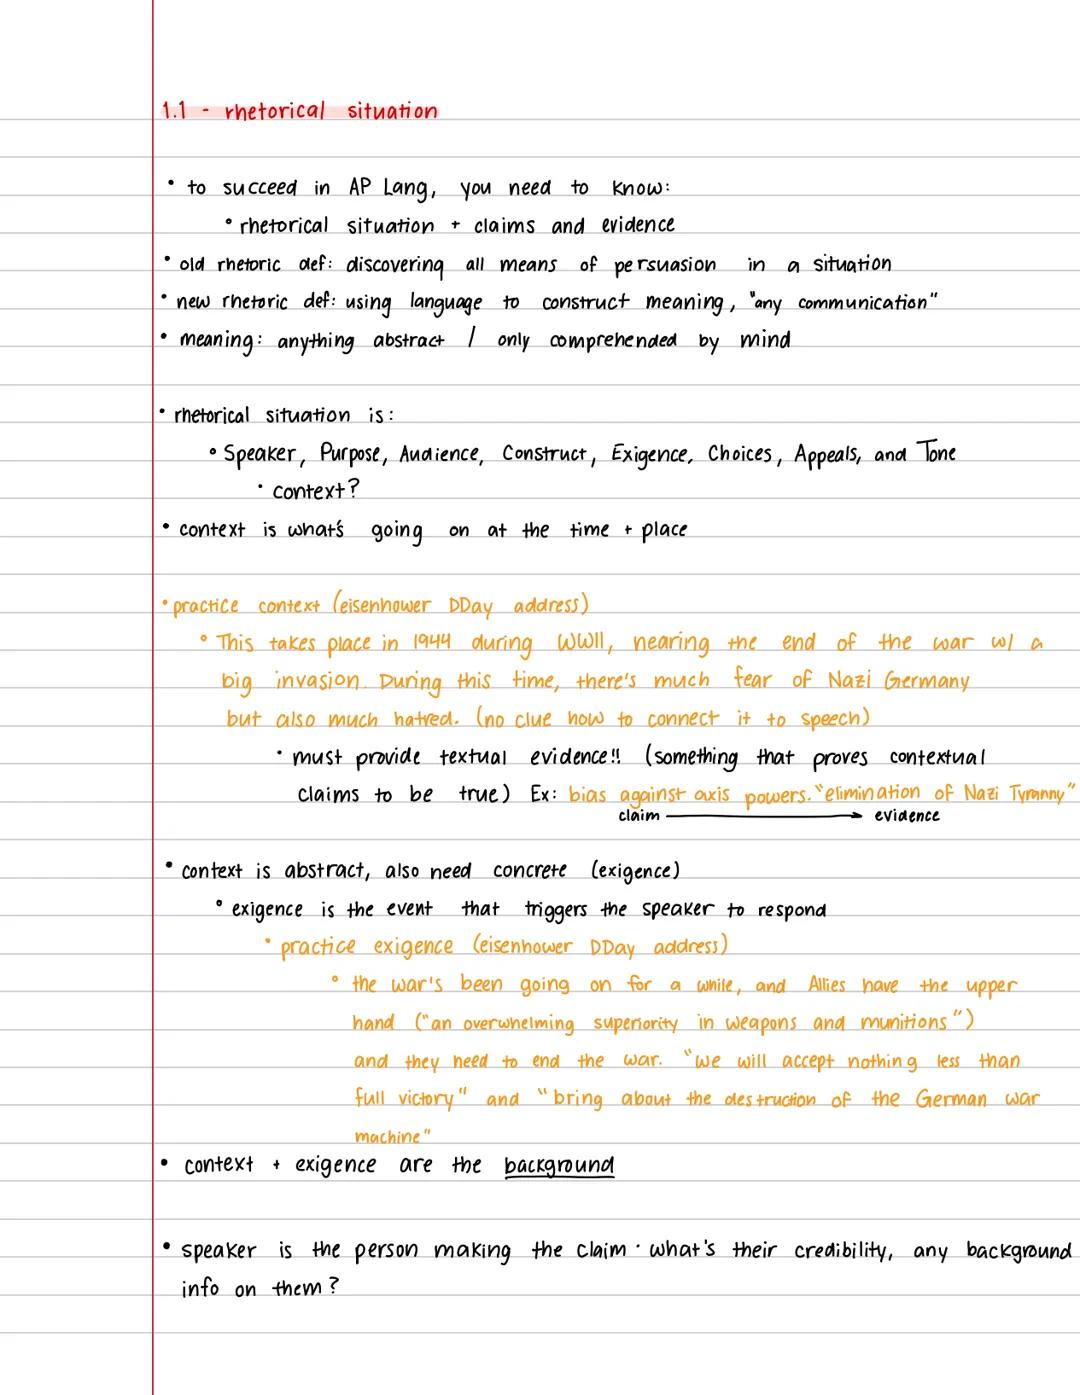 1.1 - rhetorical situation
• to succeed in AP Lang, you need to know:
• rhetorical situation + claims and evidence
• old rhetoric def: discovering all means of persuasion in a situation
• new rhetoric def: using language to construct meaning, "any communication"
• meaning: anything abstract / only comprehended by mind
• rhetorical situation is:
• Speaker, Purpose, Audience, Construct, Exigence, Choices, Appeals, and Tone
• context?
• context is what's going on at the time + place
• practice context (eisenhower DDay address)
• This takes place in 1944 during WWII, nearing the end of the war w/ a
big invasion. During this time, there's much fear of Nazi Germany
but also much hatred. (no clue how to connect it to speech)
• must provide textual evidence!! (something that proves contextual
claims to be true) Ex: bias against axis powers. "elimination of Nazi Tyranny"
claim → evidence
• context is abstract, also need concrete (exigence)
• exigence is the event that triggers the speaker to respond
• practice exigence (eisenhower DDay address)
• the war's been going on for a while, and Allies have the upper
hand ("an overwhelming superiority in weapons and munitions")
and they need to end the war. "we will accept nothing less than
full victory" and "bring about the destruction of the German war
machine"
• context + exigence are the background
• speaker is the person making the claim · what's their credibility, any background
info on them?